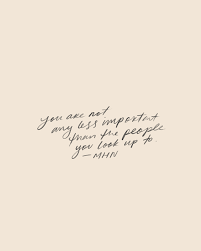 you are not
any less important
than the people
you look up to.
—MHN